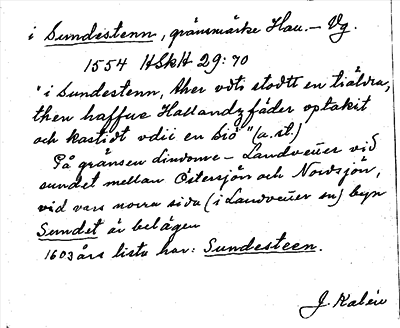 i Sundestenn, gränsmärke Hall.– Vg.
1554 HSkH 29:70
"i Sundestenn, ther vdti stodtt en tiäldra,
then haffue Hallandzfáder optakit
och kastidt vdii en Siö" (a.st.)
På gränsen Lindome – Landvetter vid
sundet mellan Östersjön och Nordsjön,
vid vars norra sida (i Landvetter sn) byn
Sundet är belägen
1603 års lista har: Sundesteen.
J. Kalén